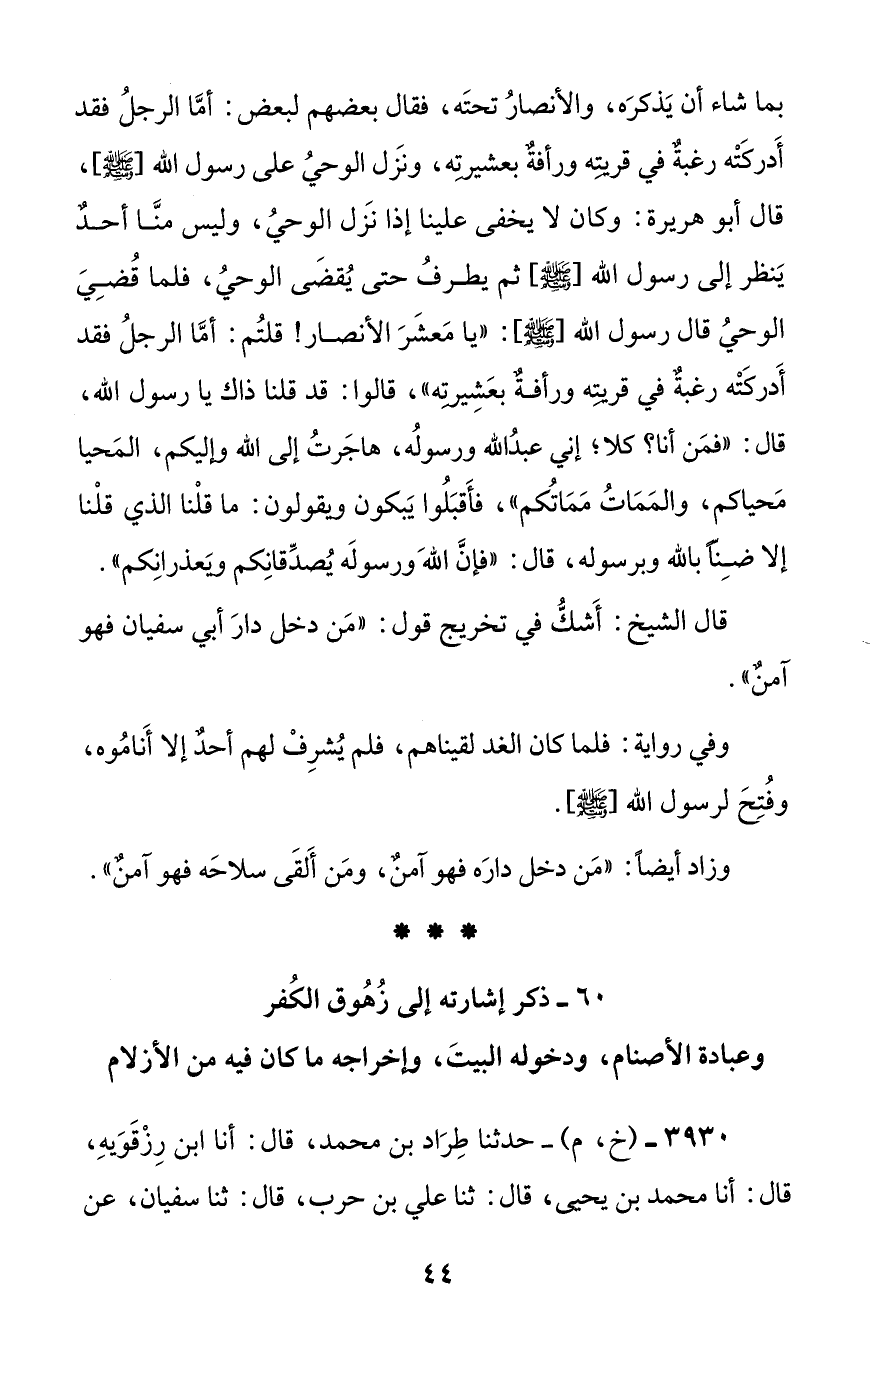 بما شاء أن يَذكرَه، والأنصارُ تحتَه، فقال بعضهم لبعض: أمَّا الرجلُ فقد
أَدركَتْه رغبةٌ في قريتِه ورأفةٌ بعشيرتِه، ونَزل الوحيُ على رسول الله [ﷺ]،
قال أبو هريرة: وكان لا يخفى علينا إذا نَزَل الوحيُ، وليس منَّا أحدٌ
يَنظر إلى رسول الله [ﷺ] ثم يطرفُ حتى يُقضَى الوحيُ، فلما قُضِيَ
الوحيُ قال رسول الله [ﷺ]: «يا مَعشَرَ الأنصار! قلتُم: أمَّا الرجلُ فقد
أَدركَتْه رغبةٌ في قريتِه ورأفةٌ بعَشِيرتِه»، قالوا: قد قلنا ذاك يا رسول الله،
قال: «فمَن أنا؟ كلا؛ إني عبدُالله ورسولُه، هاجَرتُ إلى الله وإليكم، المَحيا
مَحياكم، والمَمَاتُ مَمَاتُكم»، فأَقبَلُوا يَبكون ويقولون: ما قلْنا الذي قلْنا
إلا ضِنّاً بالله وبرسوله، قال: «فإنَّ اللهَ ورسولَه يُصدِّقانِكم ويَعذرانِكم».
قال الشيخ: أَشكُّ في تخريج قول: «مَن دخل دارَ أبي سفيان فهو
آمنٌ».
وفي رواية: فلما كان الغد لقيناهم، فلم يُشرِفْ لهم أحدٌ إلا أَنامُوه،
وفُتِحَ لرسول الله [ﷺ].
وزاد أيضاً: «مَن دخل دارَه فهو آمنٌ، ومَن أَلقَى سلاحَه فهو آمنٌ».
* * *
٦٠ ـ ذكر إشارته إلى زُهُوق الكُفر
وعبادة الأصنام، ودخوله البيتَ، وإخراجه ما كان فيه من الأزلام
٣٩٣٠ ـ (خ، م) ـ حدثنا طِرَاد بن محمد، قال: أنا ابن رِزْقَوَيهِ،
قال: أنا محمد بن يحيى، قال: ثنا علي بن حرب، قال: ثنا سفيان، عن
٤٤